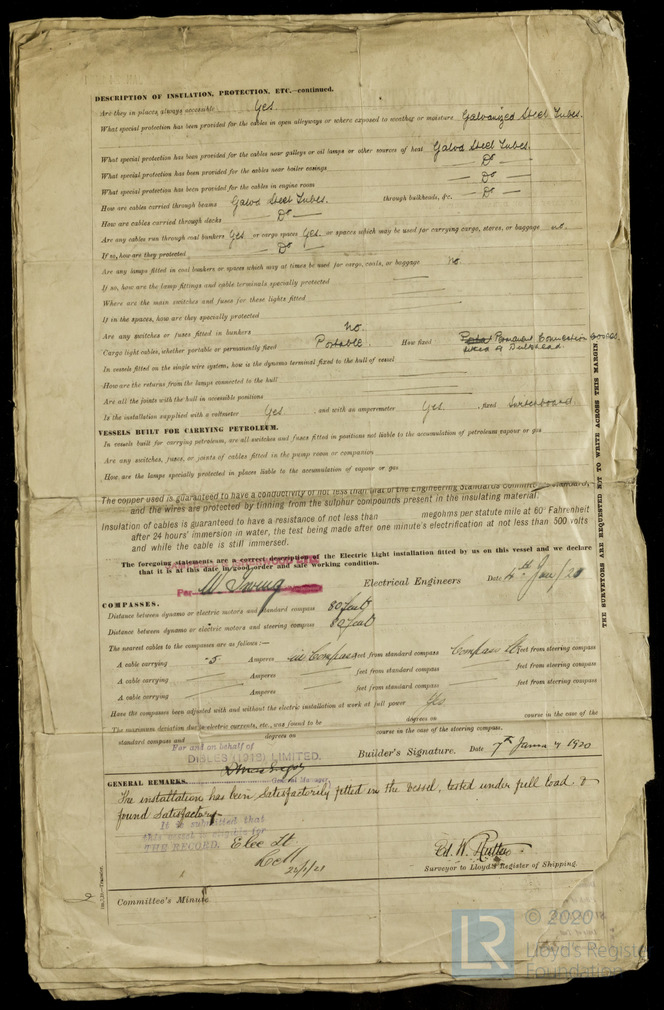 DESCRIPTION OF INSULATION, PROTECTION, ETC.—continued.
Are they in places always accessible Yes.
What special protection has been provided for the cables in open alleyways or where exposed to weather or moisture Galvanized Steel Tubes.
What special protection has been provided for the cables near galleys or oil lamps or other sources of heat Galvd Steel Tubes.
What special protection has been provided for the cables near boiler casings — Do —
What special protection has been provided for the cables in engine room — Do —
How are cables carried through beams Galvd Steel Tubes. through bulkheads, &c. — Do —
How are cables carried through decks — Do —
Are any cables run through coal bunkers Yes or cargo spaces Yes. or spaces which may be used for carrying cargo, stores, or baggage no.
If so, how are they protected — Do —
Are any lamps fitted in coal bunkers or spaces which may at times be used for cargo, coals, or baggage no.
If so, how are the lamp fittings and cable terminals specially protected
Where are the main switches and fuses for these lights fitted
If in the spaces, how are they specially protected
Are any switches or fuses fitted in bunkers no.
Cargo light cables, whether portable or permanently fixed Portable. How fixed Permanent Connection
Bulkhead.
In vessels fitted on the single wire system, how is the dynamo terminal fixed to the hull of vessel
How are the returns from the lamps connected to the hull
Are all the joints with the hull in accessible positions
Is the installation supplied with a voltmeter Yes. ; and with an amperemeter Yes. , fixed
VESSELS BUILT FOR CARRYING PETROLEUM.
In vessels built for carrying petroleum, are all switches and fuses fitted in positions not liable to the accumulation of petroleum vapour or gas
Are any switches, fuses, or joints of cables fitted in the pump room or companion
How are the lamps specially protected in places liable to the accumulation of vapour or gas
THE SURVEYORS ARE REQUESTED NOT TO WRITE ACROSS THIS MARGIN
The copper used is guaranteed to have a conductivity of not less than that of the Engineering Standards standard,
and the wires are protected by tinning from the sulphur compounds present in the insulating material.
Insulation of cables is guaranteed to have a resistance of not less than megohms per statute mile at 60° Fahrenheit
after 24 hours' immersion in water, the test being made after one minute's electrification at not less than 500 volts
and while the cable is still immersed.
The foregoing statements are a correct description of the Electric Light installation fitted by us on this vessel and we declare
that it is at this date in good order and safe working condition.
Per Electrical Engineers Date 4th Jan/20
COMPASSES.
Distance between dynamo or electric motors and standard compass 80 feet
Distance between dynamo or electric motors and steering compass 80 feet
The nearest cables to the compasses are as follows:—
A cable carrying .5 Amperes in Compass feet from standard compass Compass feet from steering compass
A cable carrying Amperes feet from standard compass feet from steering compass
A cable carrying Amperes feet from standard compass feet from steering compass
Have the compasses been adjusted with and without the electric installation at work at full power Yes
The maximum deviation due to electric currents, etc., was found to be degrees on course in the case of the
standard compass and degrees on course in the case of the steering compass.
For and on behalf of
DIBLES (1912) LIMITED.
Builder's Signature. Date 7th 1920
General Manager.
GENERAL REMARKS.
The installation has been satisfactorily fitted in the vessel, tested under full load &
found satisfactory.
It is submitted that
this vessel is eligible for
THE RECORD. Elec Lt
Surveyor to Lloyd's Register of Shipping.
Committee's Minute
LR
© 2020
Lloyd's Register
Foundation